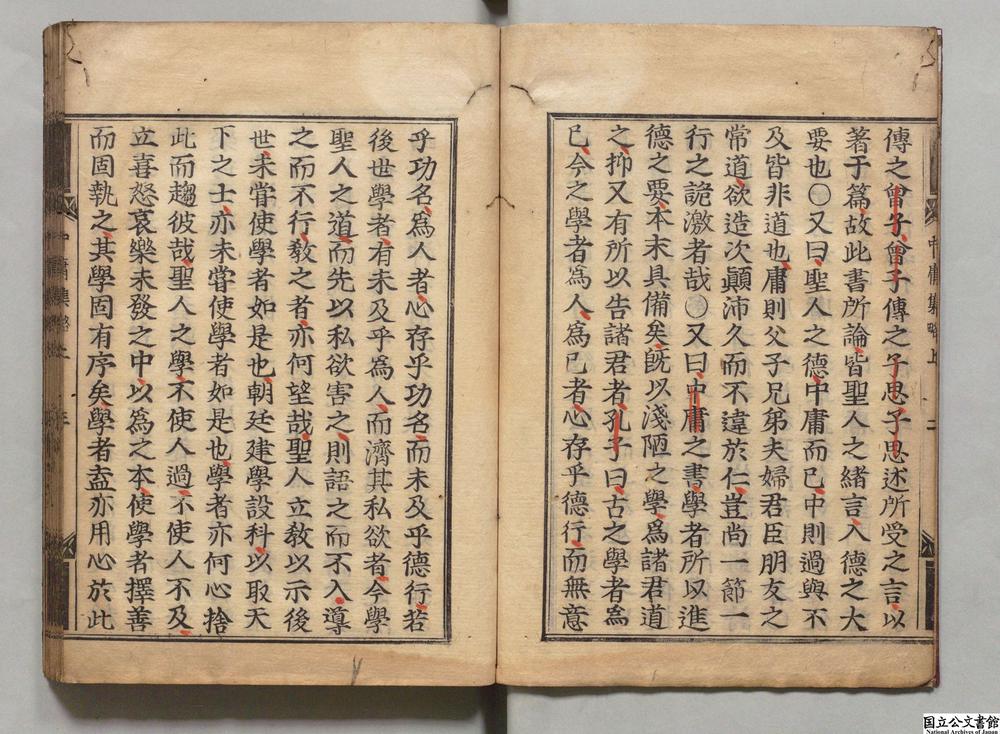 傳之曾子曾子傳之子思子思述所受之言以
著于篇故此書所論皆聖人之緒言入德之大
要也〇又曰聖人之德中庸而已中則過與不
及皆非道也庸則父子兄弟夫婦君臣朋友之
常道欲造次顚沛久而不違於仁豈尚一節一
行之詭激者哉〇又曰中庸之書學者所以進
德之要本末具備矣旣以淺陋之學爲諸君道
之抑又有所以告諸君者孔子曰古之學者爲
已今之學者爲人爲已者心存乎德行而無意
中庸集略上 二
乎功名爲人者心存乎功名而未及乎德行若
後世學者有未及乎爲人而濟其私欲者今學
聖人之道而先以私欲害之則語之而不入導
之而不行敎之者亦何望哉聖人立敎以示後
世未甞使學者如是也朝廷建學設科以取天
下之士亦未甞使學者如是也學者亦何心捨
此而趨彼哉聖人之學不使人過不使人不及
立喜怒哀樂未發之中以爲之本使學者擇善
而固執之其學固有序矣學者盍亦用心於此
中庸集略上
国立公文書館
National Archives of Japan